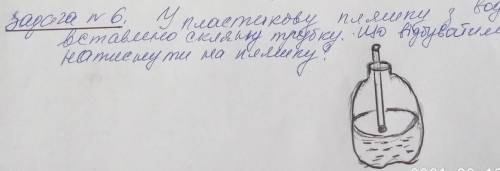 Задача № 6. У пластикову пляшку з вод
вставлено скляну трубку. Що відбуватим
натиснути на пляшку?